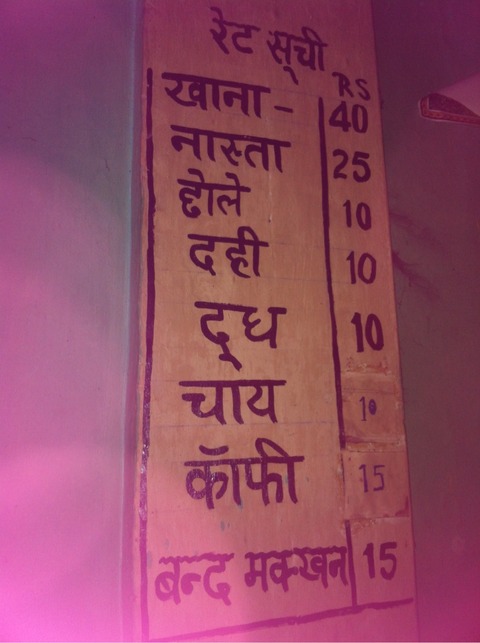 रेट सूची
RS
खाना - 40
नास्ता 25
छोले 10
दही 10
दूध 10
चाय 10
कॉफी 15
बन्द मक्खन 15